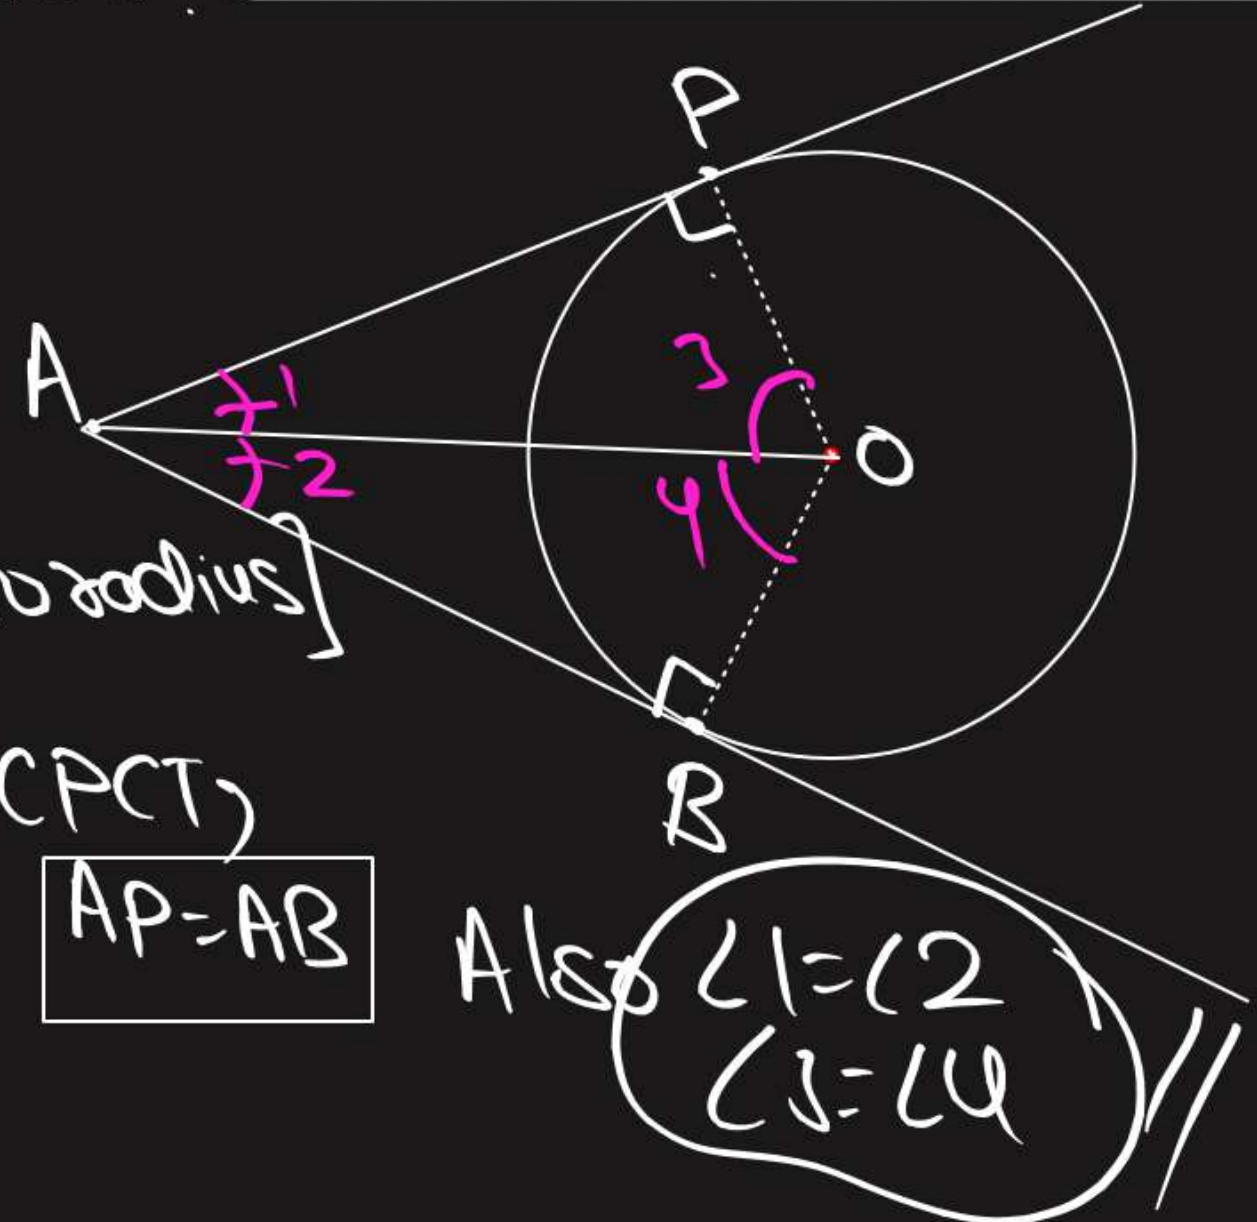 P
A
1
3
2
4
O
radius]
CPCT,
B
AP=AB
Also ∠1=∠2
∠3=∠4